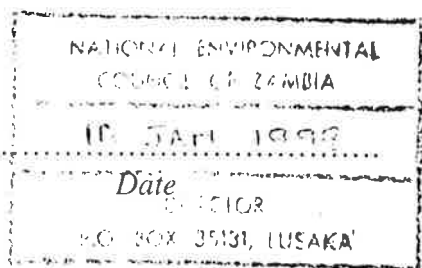 NATIONAL ENVIRONMENTAL
COUNCIL OF ZAMBIA
JAN
Date
DIRECTOR
P.O BOX 35131, LUSAKA